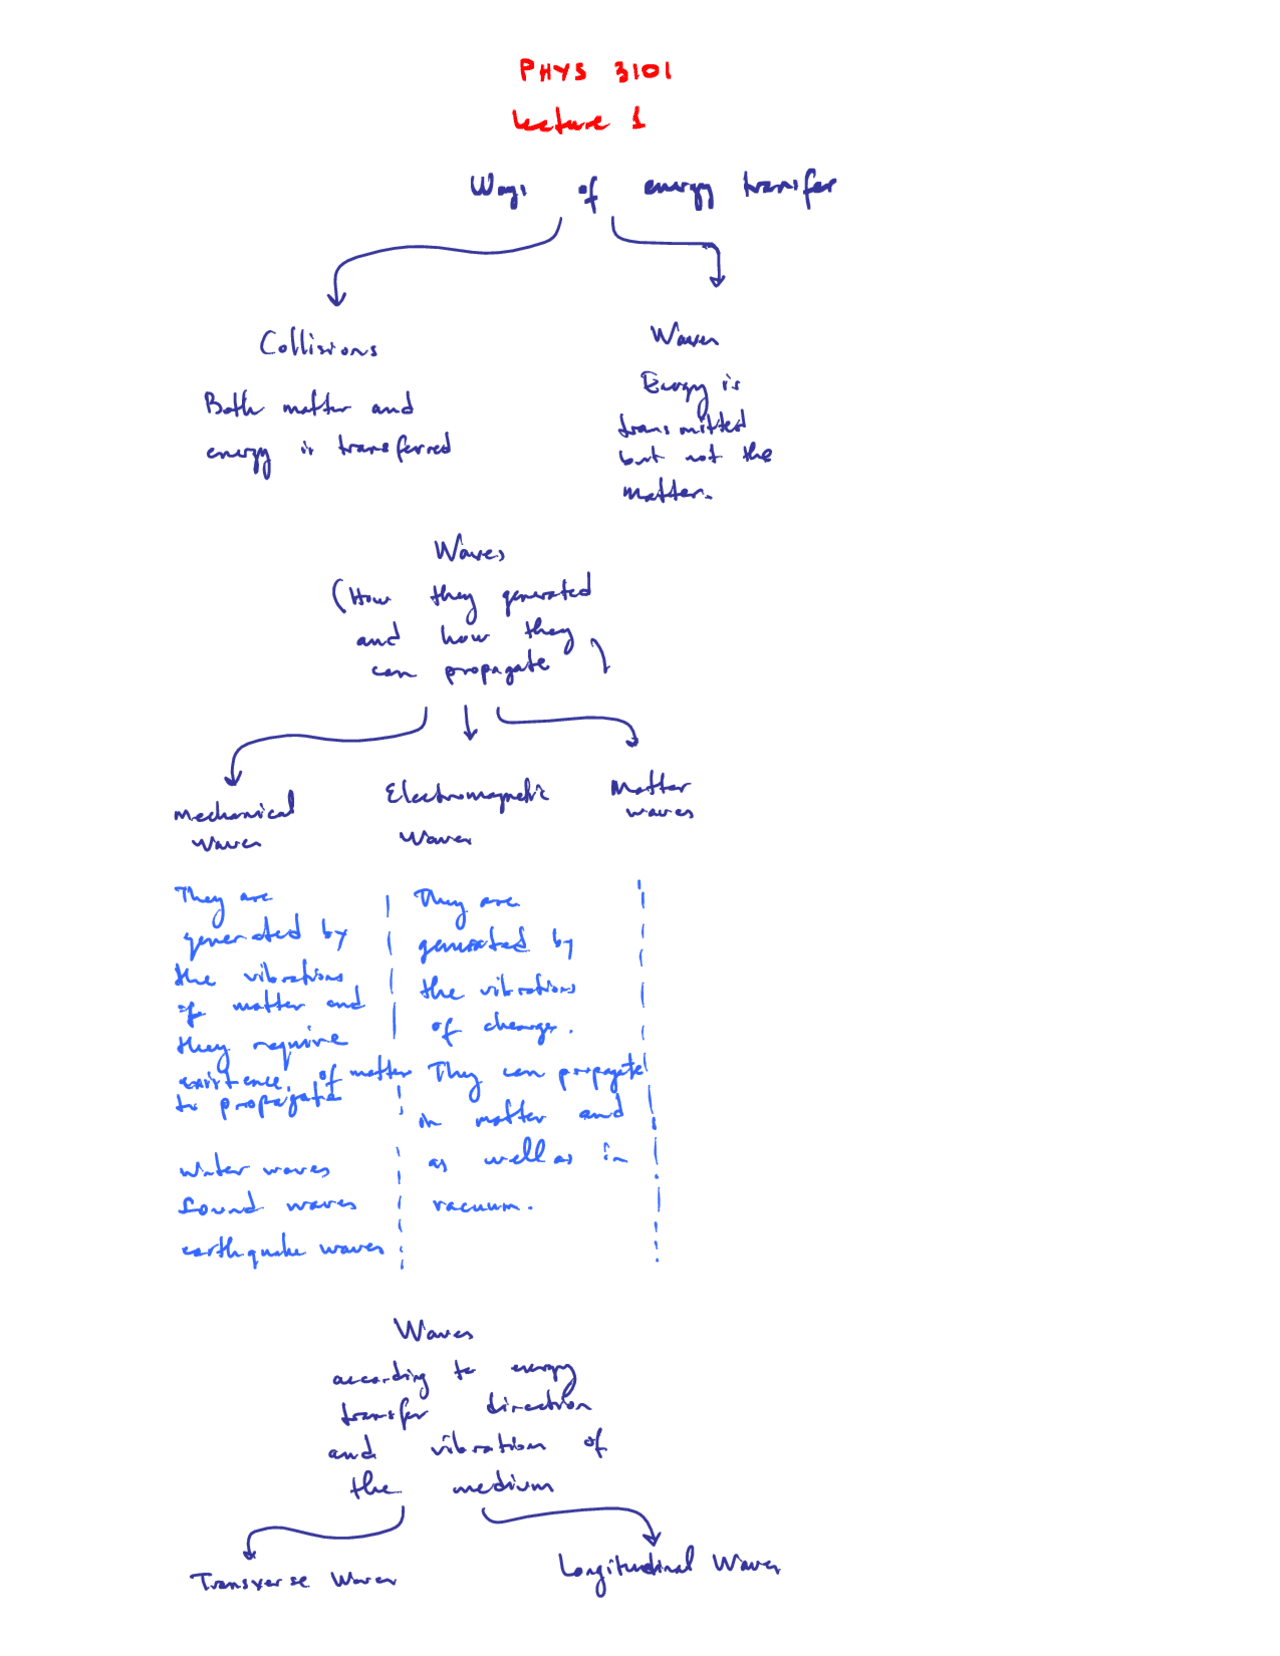 PHYS 3101
Lecture 1
Ways of energy transfer
Collisions
Both matter and
energy is transferred
Waves
Energy is
transmitted
but not the
matter.
Waves
(How they generated
and how they
can propagate)
Mechanical
waves
Electromagnetic
Waves
Matter
waves
They are
generated by
the vibrations
of matter and
they require
existence of matter
to propagate
water waves
Sound waves
earthquake waves
They are
generated by
the vibrations
of charge.
They can propagate
in matter and
as well as in
vacuum.
Waves
according to energy
transfer direction
and vibration of
the medium
Transverse Waves
Longitudinal Waves